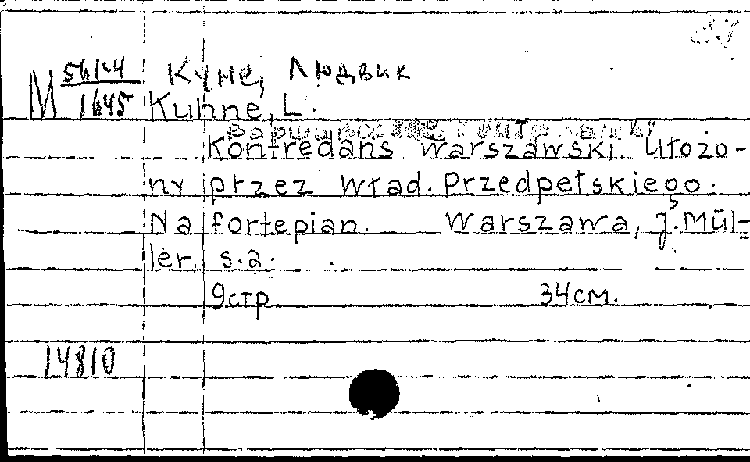 М 561-4 Куне, Людвик
1645 Kuhne, L.
Kontredans warszawski. Ułożo-
ny przez Wład. Przedpełskiego.
Na fortepian. Warszawa, J. Mül-
ler, s.a.
9стр 34см.
14810